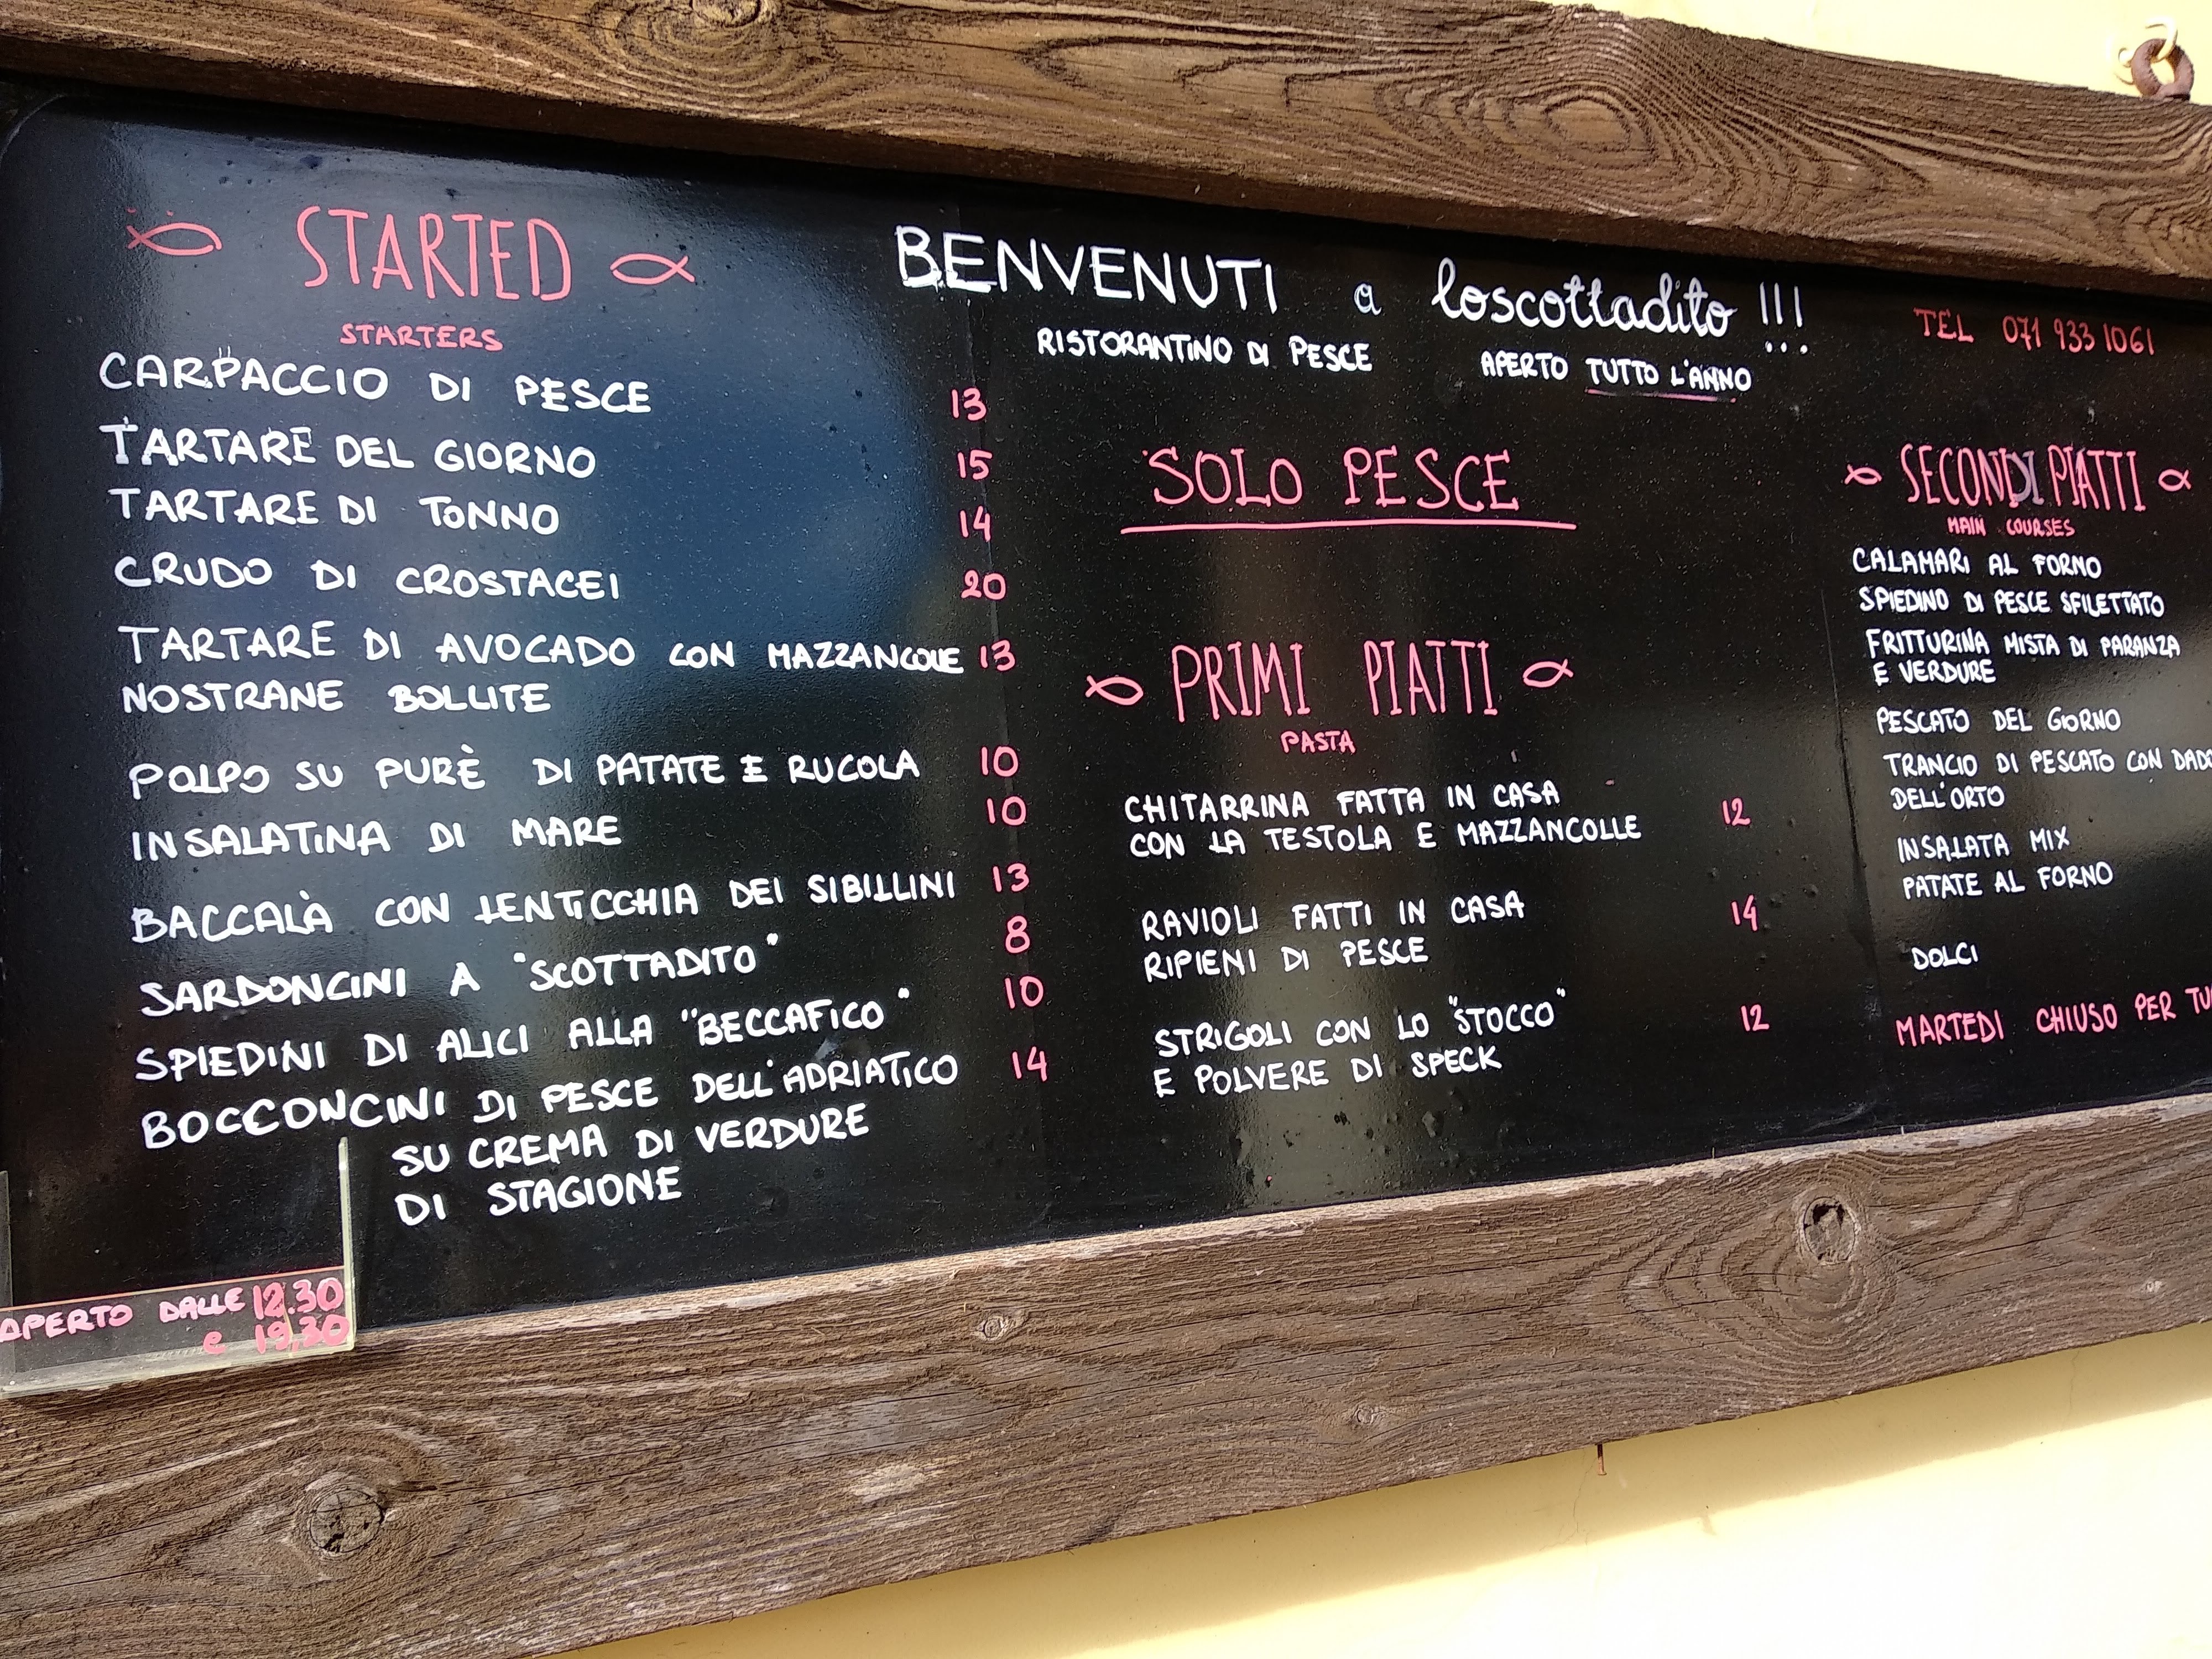 STARTED
STARTERS
CARPACCIO DI PESCE 13
TARTARE DEL GIORNO 15
TARTARE DI TONNO 14
CRUDO DI CROSTACEI 20
TARTARE DI AVOCADO CON MAZZANCOLLE 13
NOSTRANE BOLLITE
POLPO SU PURÈ DI PATATE E RUCOLA 10
INSALATINA DI MARE 10
BACCALÀ CON LENTICCHIA DEI SIBILLINI 13
SARDONCINI A "SCOTTADITO" 8
SPIEDINI DI ALICI ALLA "BECCAFICO" 10
BOCCONCINI DI PESCE DELL'ADRIATICO 14
SU CREMA DI VERDURE
DI STAGIONE
APERTO DALLE 12.30
e 19,30
BENVENUTI a loscottadito !!!
RISTORANTINO DI PESCE APERTO TUTTO L'ANNO
TEL 071 933 1061
SOLO PESCE
PRIMI PIATTI
PASTA
CHITARRINA FATTA IN CASA
CON LA TESTOLA E MAZZANCOLLE 12
RAVIOLI FATTI IN CASA 14
RIPIENI DI PESCE
STRIGOLI CON LO "STOCCO" 12
E POLVERE DI SPECK
SECONDI PIATTI
MAIN COURSES
CALAMARI AL FORNO
SPIEDINO DI PESCE SFILETTATO
FRITTURINA MISTA DI PARANZA
E VERDURE
PESCATO DEL GIORNO
TRANCIO DI PESCATO CON
DELL'ORTO
INSALATA MIX
PATATE AL FORNO
DOLCI
MARTEDI CHIUSO PER